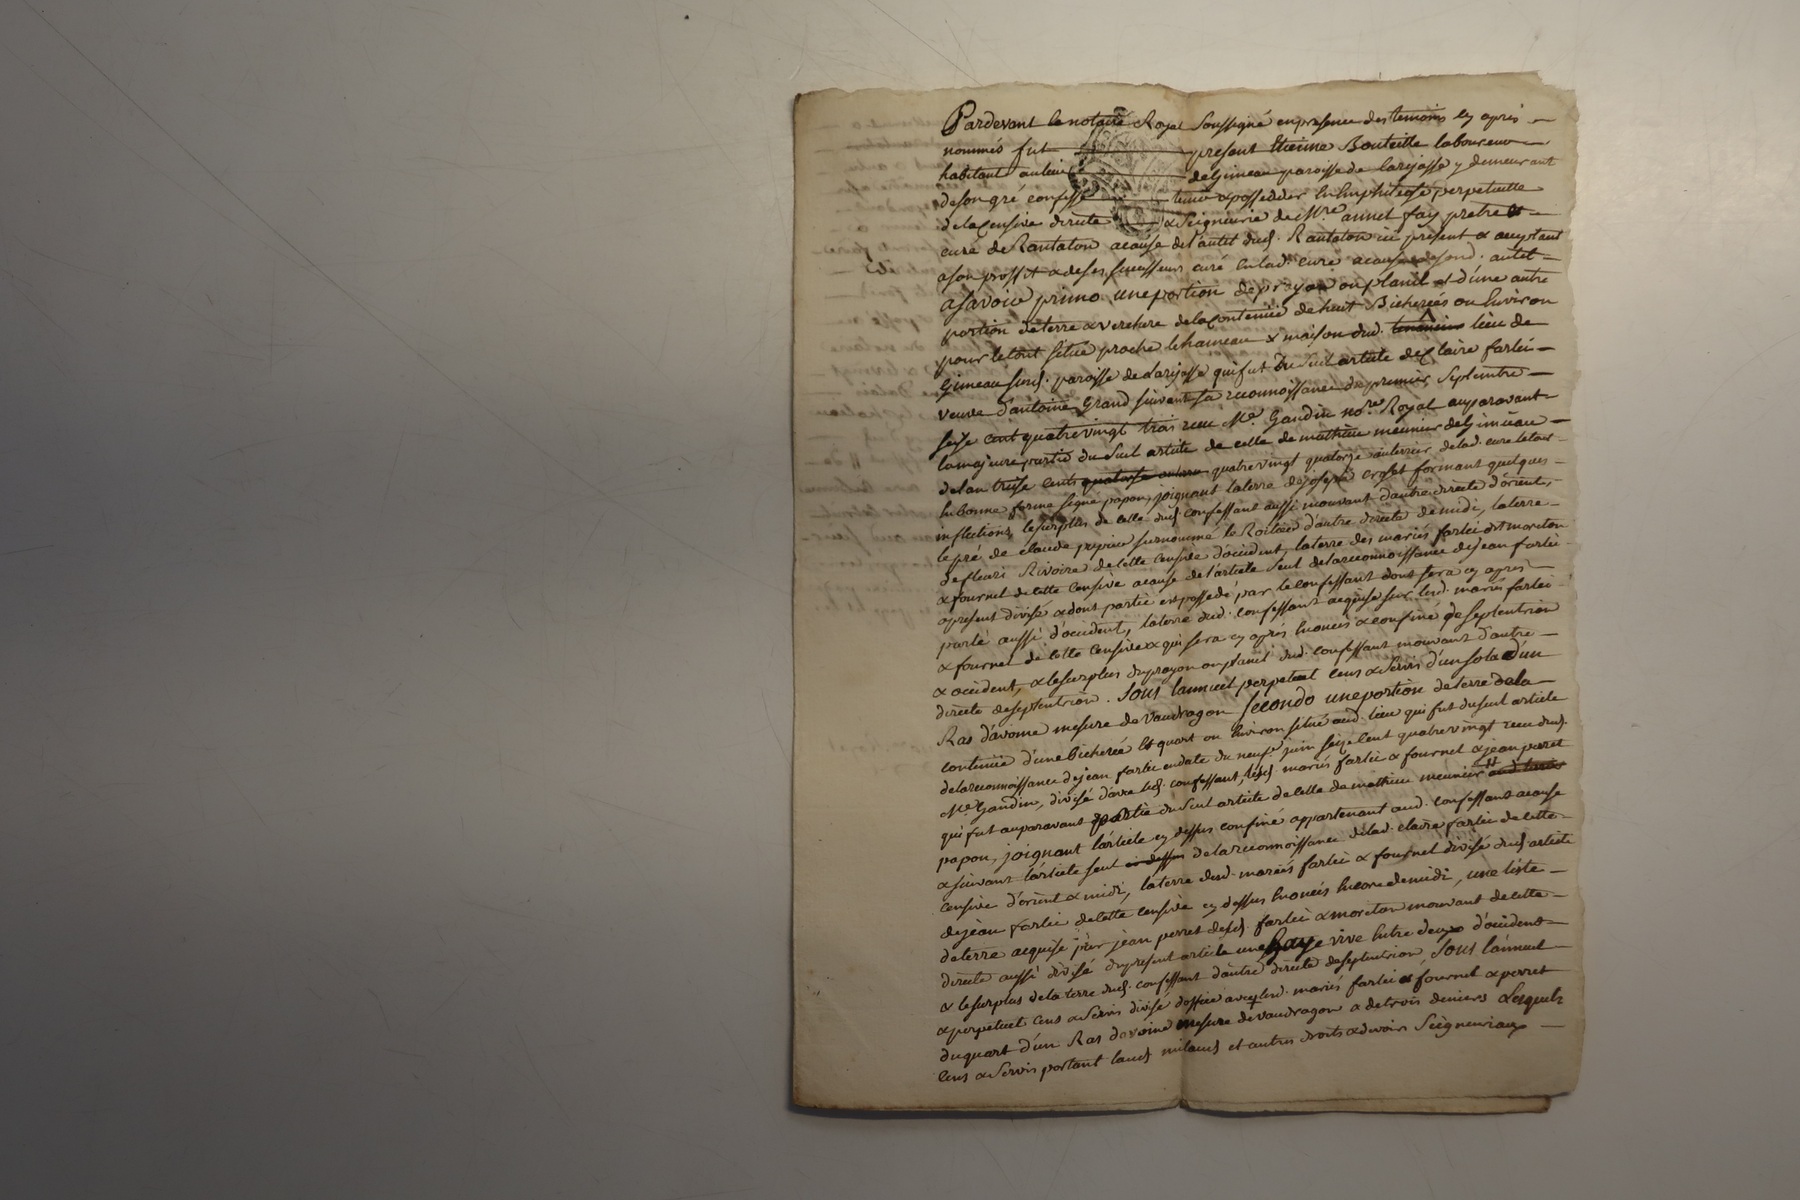 Pardevant le notaire Royal soussigné en presence des temoins cy apres
nommés fut present Etienne Bouteille laboureur
habitant au lieu de Gimeau paroisse de larajasse y demeurant
de son gré confesse tenir & posseder en Emphiteose perpetuelle
de la Censive directe & Seigneurie de Mre annet fay pretre &
curé de Rontalon acause de l'autel dud. Rontalon icy present & acceptant
a son proffit & de ses successeurs curé en lad. cure acause de sond. autel
asavoir primo une portion de prayon ou planil et d'une autre
portion de terre & verchere de la Contenue de huit Bicherées ou Environ
pour le tout situé proche le hameau & maison dud. lieu de
Gimeau susd. paroisse de Larajasse qui fut du seul article de Claire farlei
veuve d'antoine Grand suivant sa reconnoissance du premier Septembre
seize cent quatre vingt trois receu Me Gaudin nore Royal auparavant
la majeure partie du seul article de celle de mathieu meunier de Gimeau
de l'an treize cents quatorze quatre vingt quatorze au terrier de lad. cure le tout
en bonne forme signé papon, joignant la terre de joseph crozet formant quelques
inflections, le surplus de celle dud. confessant aussi mouvant d'autre directe d'orient,
le pré de claude surnommé le Roitain d'autre directe de midi, la terre
de fleuri Rivoire de cette Censive d'occident, la terre des mariés farlei dit moreton
& fournel de cette Censive acause de l'article seul de la reconnoissance de jean farlei
apresent divisé & dont partie est possedé par le confessant dont sera cy apres
parlé aussi d'occident, la terre dud. confessant acquise sur lesd. mariés farlei
& fournel de cette Censive & qui sera cy apres Enoncés & confiné de septentrion
& occident, & le surplus du prayon ou planil dud. confessant mouvant d'autre
directe de septentrion. Sous l'annuel perpetuel Cens & Servis d'un sol & d'un
Ras d'avoine mesure de Vaudragon Secondo une portion de terre de la
contenue d'une Bicherée Et quart ou Environ situé aud. lieu qui fut du seul article
de la reconnoissance de jean farlei en date du neuf juin seize Cent quatre vingt receu dud.
Me Gaudin, divisé d'avec led. confessant, lesd. mariés farlei & fournel & jean perret
qui fut auparavant partie du seul article de celle de mathieu meunier
papon, joignant l'article cy dessus confiné appartenant aud. confessant acause
& suivant l'article seul de la reconnoissance de lad. claire farlei de cette
Censive d'orient & midi, la terre desd. mariés farlei & fournel divisé dud. article
de jean farlei de cette Censive cy dessus Enoncés Encore de midi, une liste
de terre acquise par jean perret desd. farlei & moreton mouvant de cette
directe aussi divisé du present article une haye vive Entre deux d'occident
& le surplus de la terre dud. confessant d'autre directe de septentrion, Sous l'annuel
& perpetuel Cens & Servis divisé d'office avec lesd. mariés farlei & fournel & perret
du quart d'un Ras d'avoine mesure de vaudragon & de trois deniers Lesquels
Cens & Servis portant laods milaods et autres droits & devoirs Seigneuriaux